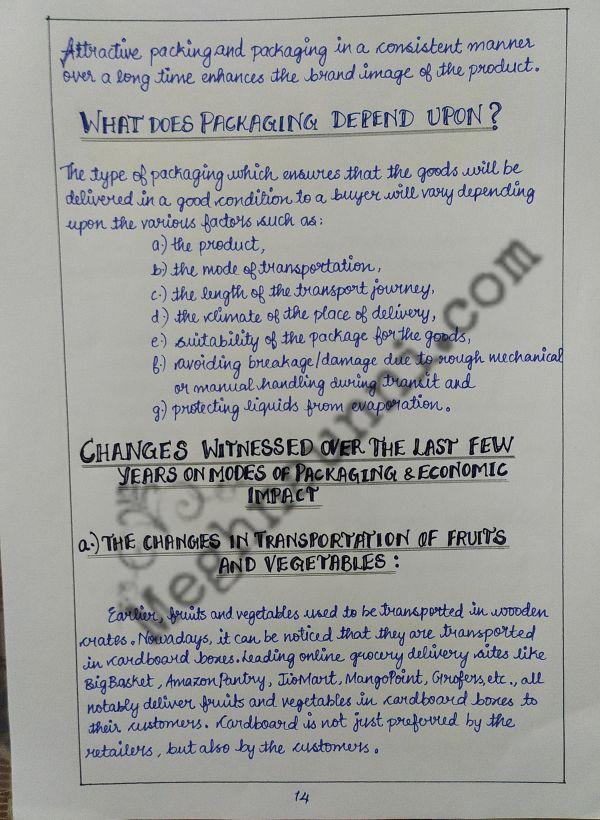 Attractive packing and packaging in a consistent manner
over a long time enhances the brand image of the product.
WHAT DOES PACKAGING DEPEND UPON?
The type of packaging which ensures that the goods will be
delivered in a good condition to a buyer will vary depending
upon the various factors such as:
a.) the product,
b.) the mode of transportation,
c.) the length of the transport journey,
d.) the climate of the place of delivery,
e.) suitability of the package for the goods,
f.) avoiding breakage/damage due to rough mechanical
or manual handling during transit and
g.) protecting liquids from evaporation.
CHANGES WITNESSED OVER THE LAST FEW
YEARS ON MODES OF PACKAGING & ECONOMIC
IMPACT
a.) THE CHANGES IN TRANSPORTATION OF FRUITS
AND VEGETABLES:
Earlier, fruits and vegetables used to be transported in wooden
crates. Nowadays, it can be noticed that they are transported
in cardboard boxes. Leading online grocery delivery sites like
BigBasket, AmazonPantry, JioMart, MangoPoint, Grofers, etc., all
notably deliver fruits and vegetables in cardboard boxes to
their customers. Cardboard is not just preferred by the
retailers, but also by the customers.
14